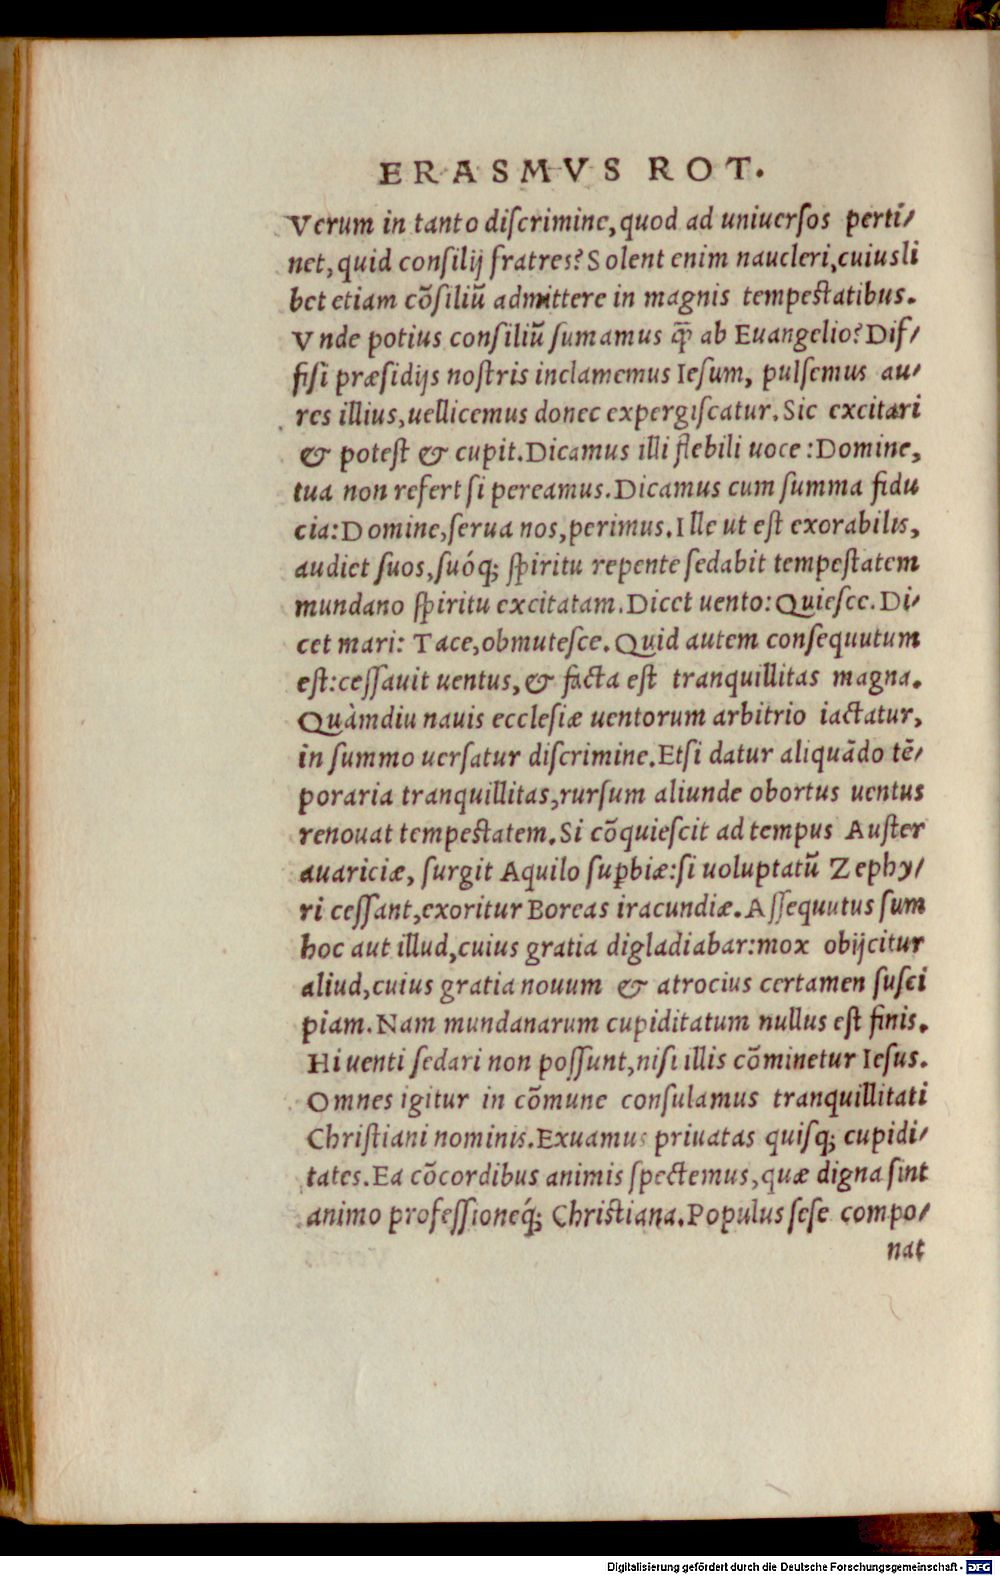 ERASMVS ROT.
Verum in tanto diſcrimine, quod ad uniuerſos perti/
net, quid conſilij fratres? Solent enim naucleri, cuiusli
bet etiam cõſiliũ admittere in magnis tempeſtatibus.
Vnde potius conſiliũ ſumamus q̃ ab Euangelio? Dif/
fiſi præſidijs noſtris inclamemus Ieſum, pulſemus au/
res illius, uellicemus donec expergiſcatur. Sic excitari
& poteſt & cupit. Dicamus illi flebili uoce: Domine,
tua non refert ſi pereamus. Dicamus cum ſumma fidu
cia: Domine, ſerua nos, perimus. Ille ut eſt exorabilis,
audiet ſuos, ſuóq; ſpiritu repente ſedabit tempeſtatem
mundano ſpiritu excitatam. Dicet uento: Quieſce. Di/
cet mari: Tace, obmuteſce. Quid autem conſequutum
eſt: ceſſauit uentus, & facta eſt tranquillitas magna.
Quàmdiu nauis eccleſiæ uentorum arbitrio iactatur,
in ſummo uerſatur diſcrimine. Etſi datur aliquãdo tẽ/
poraria tranquillitas, rurſum aliunde obortus uentus
renouat tempeſtatem. Si cõquieſcit ad tempus Auſter
auariciæ, ſurgit Aquilo ſuꝑbiæ: ſi uoluptatũ Zephy/
ri ceſſant, exoritur Boreas iracundiæ. Aſſequutus ſum
hoc aut illud, cuius gratia digladiabar: mox obijcitur
aliud, cuius gratia nouum & atrocius certamen ſuſci
piam. Nam mundanarum cupiditatum nullus eſt finis.
Hi uenti ſedari non poſſunt, niſi illis cõminetur Ieſus.
Omnes igitur in cõmune conſulamus tranquillitati
Chriſtiani nominis. Exuamus priuatas quiſq; cupidi/
tates. Ea cõcordibus animis ſpectemus, quæ digna ſint
animo profeſſioneq́; Chriſtiana. Populus ſeſe compo/
nat
Digitalisierung gefördert durch die Deutsche Forschungsgemeinschaft - DFG